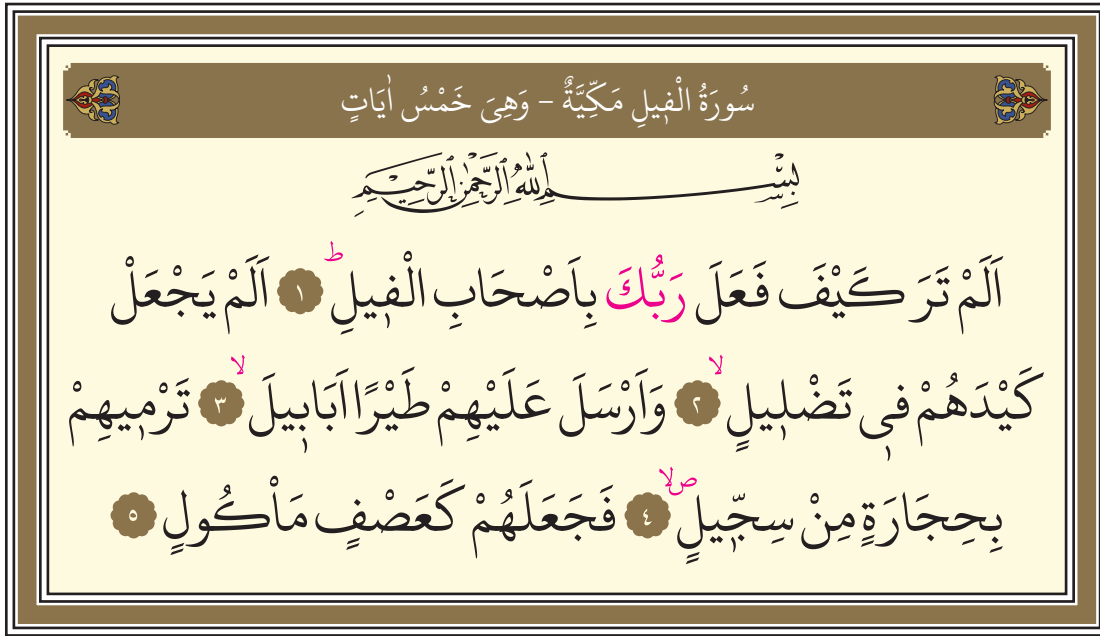 سُورَةُ الْفٖيلِ مَكِّيَّةٌ – وَهِىَ خَمْسُ اٰيَاتٍ
بِسْمِ اللّٰهِ الرَّحْمٰنِ الرَّحٖيمِ
اَلَمْ تَرَ كَيْفَ فَعَلَ رَبُّكَ بِاَصْحَابِ الْفٖيلِ ؕ ﴿١﴾ اَلَمْ يَجْعَلْ
كَيْدَهُمْ فٖى تَضْلٖيلٍ ۙ ﴿٢﴾ وَاَرْسَلَ عَلَيْهِمْ طَيْرًا اَبَابٖيلَ ۙ ﴿٣﴾ تَرْمٖيهِمْ
بِحِجَارَةٍ مِنْ سِجّٖيلٍ ۙص ﴿٤﴾ فَجَعَلَهُمْ كَعَصْفٍ مَاْكُولٍ ﴿٥﴾